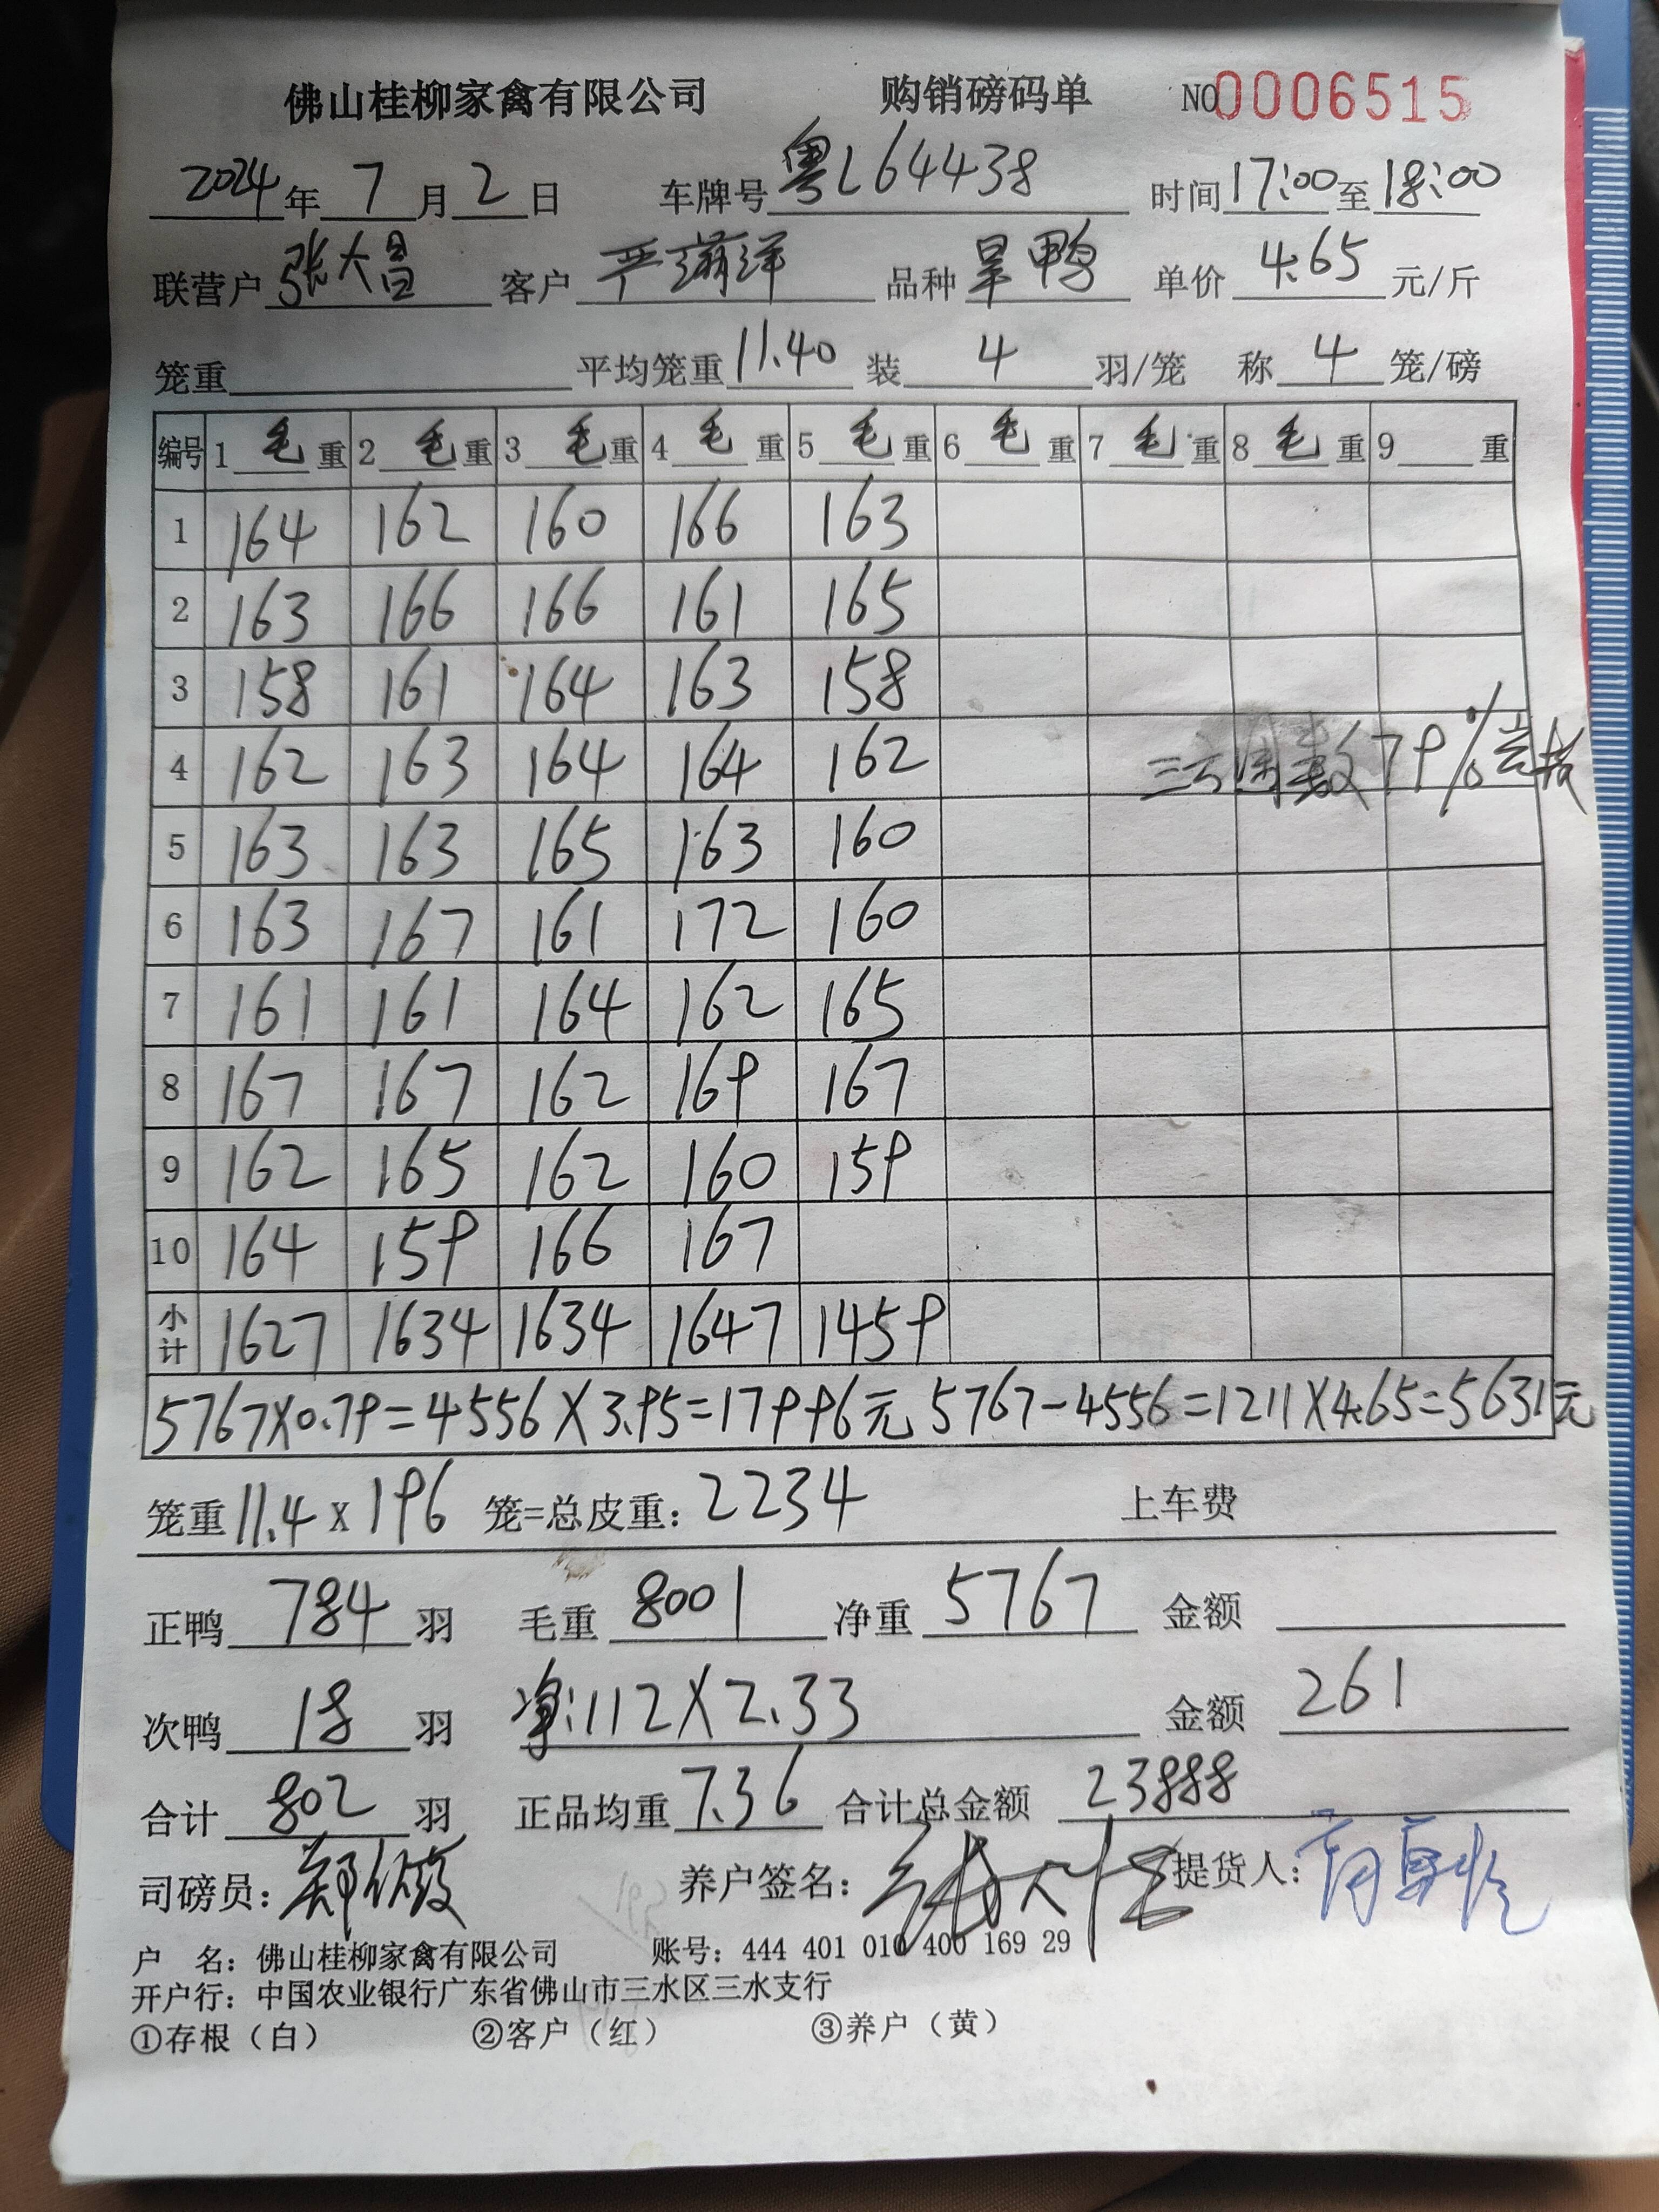 佛山桂柳家禽有限公司 购销磅码单 NO0006515
2024年7月2日 车牌号粤L64438 时间17:00至18:00
联营户张大昌 客户严 洋 品种旱鸭 单价4.65元/斤
笼重 平均笼重11.40装4羽/笼 称4笼/磅
编号 1毛重 2毛重 3毛重 4毛重 5毛重 6毛重 7毛重 8毛重 9重
1 164 162 160 166 163
2 163 166 166 161 165
3 158 161 164 163 158
4 162 163 164 164 162 数79%
5 163 163 165 163 160
6 163 167 161 172 160
7 161 161 164 162 165
8 167 167 162 169 167
9 162 165 162 160 159
10 164 159 166 167
小计 1627 1634 1634 1647 1459
5767X0.79=4556X3.95=17996元 5767-4556=1211X4.65=5631元
笼重11.4x196笼=总皮重:2234 上车费
正鸭784羽 毛重8001 净重5767 金额
次鸭18羽 净:112X2.33 金额261
合计802羽 正品均重7.36 合计总金额23888
司磅员:郑 养户签名: 提货人:
户 名:佛山桂柳家禽有限公司 账号:444 401 010 400 169 29
开户行:中国农业银行广东省佛山市三水区三水支行
①存根(白) ②客户(红) ③养户(黄)